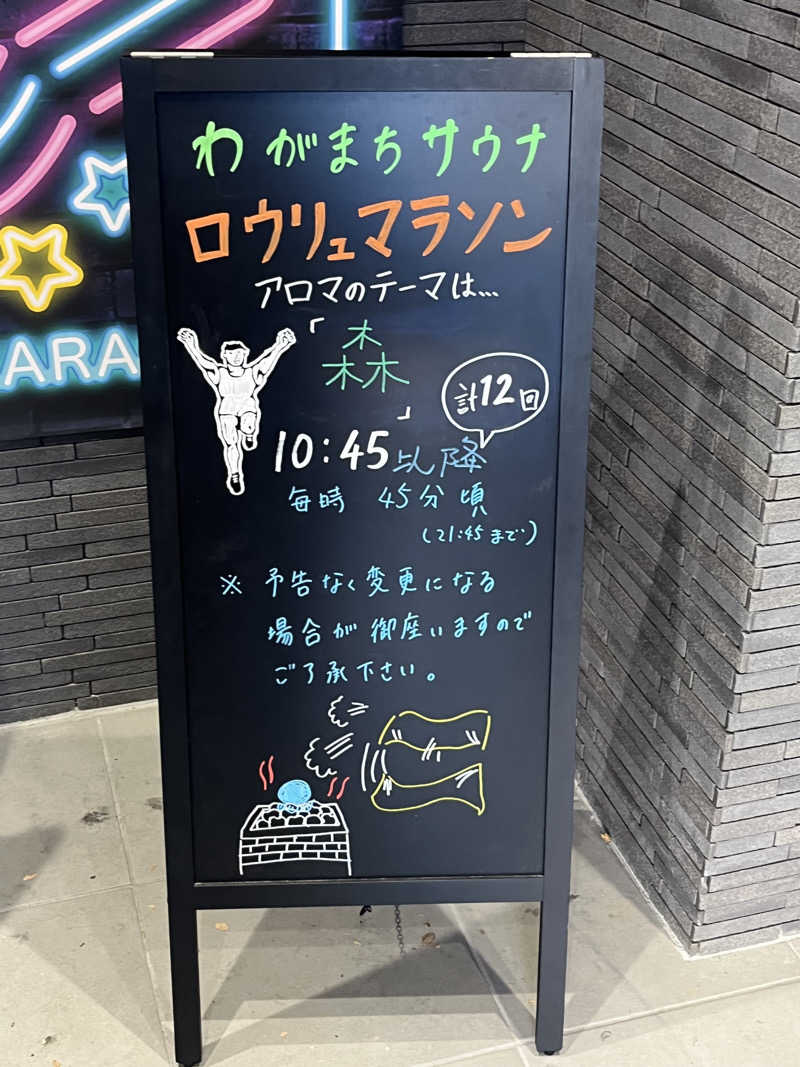 わがまちサウナ
ロウリュマラソン
アロマのテーマは...
「森」
計12回
10:45以降
毎時 45分頃
(21:45まで)
※ 予告なく変更になる
場合が御座いますので
ご了承下さい。
ARA